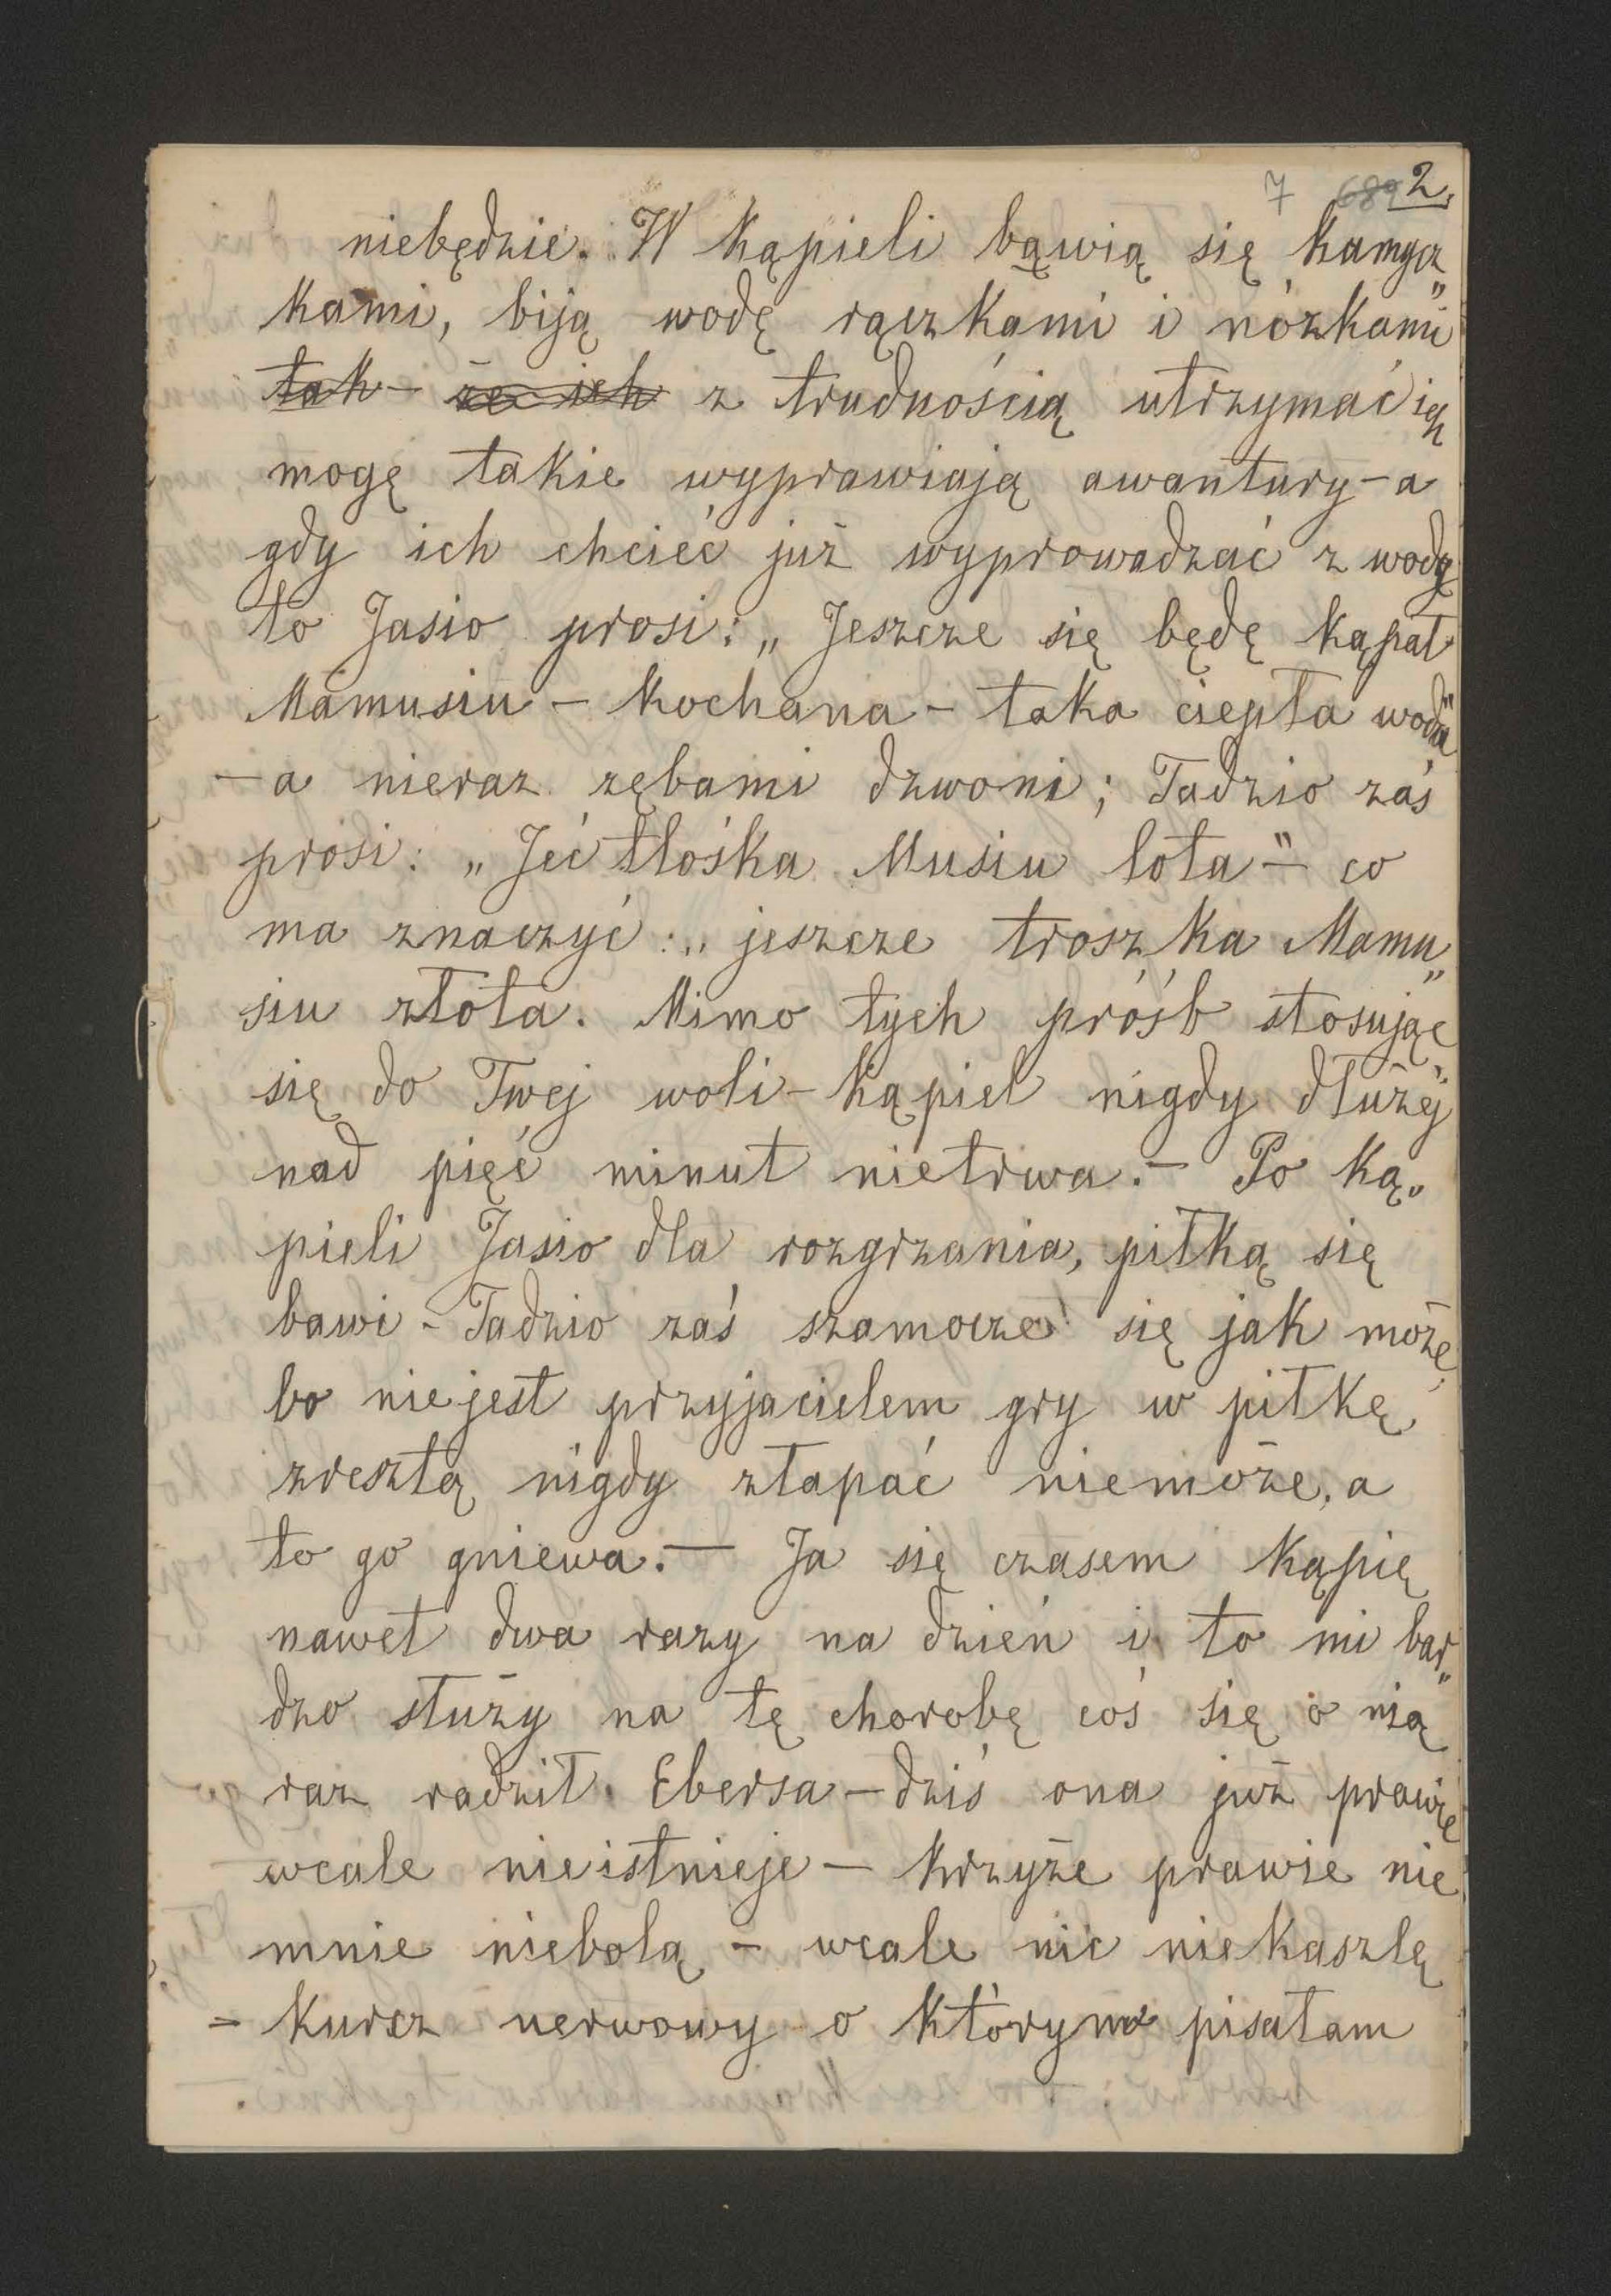 7 689 2.
niebędzie. W kąpieli bąwią się kamycz„
kami, biją wodę rączkami i nóżkami
tak – że ich z trudnością utrzymać ich
mogę takie wyprawiają awantury – a
gdy ich chcieć już wyprowadzać z wody
to Jasio prosi: „Jeszcze się będę kąpał
Mamusiu – kochana – taka ciepła woda"
– a nieraz zębami dzwoni; Tadzio zaś
prosi: „Jeć tłośka Musiu łota" – co
ma znaczyć: „jeszcze troszka Mamu„
siu złota. Mimo tych próśb stosując
się do Twej woli – kąpiel nigdy dłużej
nad pięć minut nietrwa. – Po ką„
pieli Jasio dla rozgrzania, piłką się
bawi – Tadzio zaś szamocze się jak może,
bo niejest przyjacielem gry w piłkę,
zresztą nigdy złapać niemoże, a
to go gniewa. – Ja się czasem kąpię
nawet dwa razy na dzień i to mi bar„
dzo służy na tę chorobę coś się o nią
raz radził Ebersa – dziś ona już prawie
wcale nieistnieje – krzyże prawie nie
mnie niebolą – wcale nic niekaszlę
– kurcz nerwowy o którym pisałam